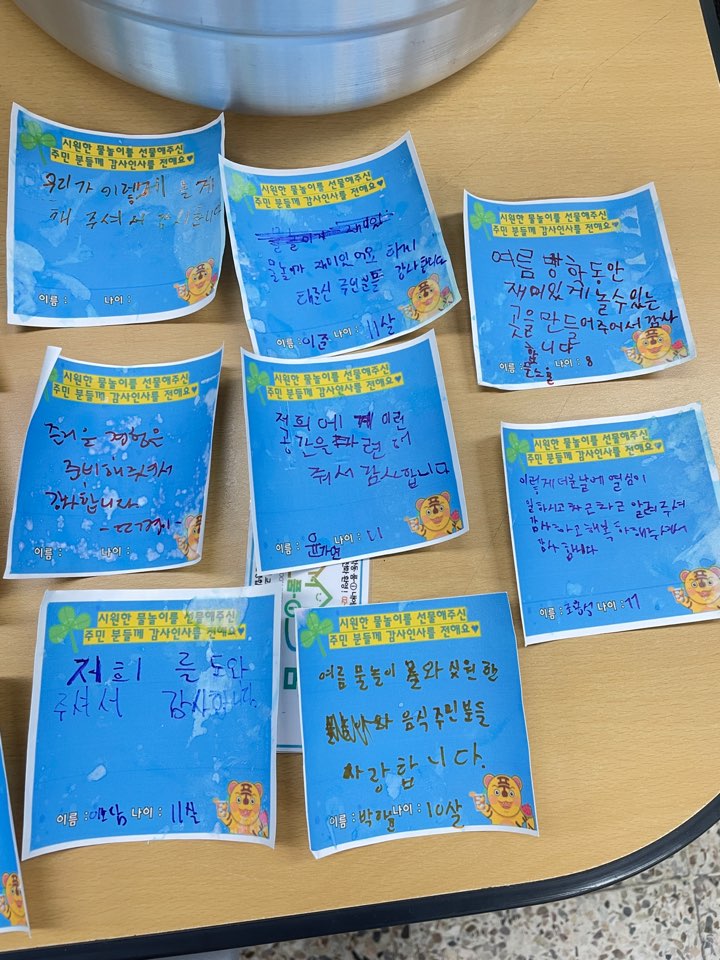 시원한 물놀이를 선물해주신
주민 분들께 감사인사를 전해요♥
우리가 이렇게 놀게
해 주셔서 감사합니다
이름 : 나이 :
시원한 물놀이를 선물해주신
주민 분들께 감사인사를 전해요♥
물놀이가 재미있어요
감사합니다
이름 : 이준 나이 : 11살
시원한 물놀이를 선물해주신
주민 분들께 감사인사를 전해요♥
여름 방학동안
재미있게 놀수있는
곳을만들어주어서감사
합니다
이름 : 나이 : 8
시원한 물놀이를 선물해주신
주민 분들께 감사인사를 전해요♥
경험은
준비해주셔서
감사합니다
이름 : 나이 :
시원한 물놀이를 선물해주신
주민 분들께 감사인사를 전해요♥
저희에게 이런
공간을 마련해
줘서 감사합니다
이름 : 윤가연 나이 : 11
시원한 물놀이를 선물해주신
주민 분들께 감사인사를 전해요♥
이렇게더운날에 열심히
일하시고 차근차근 알려주셔
감사하고 행복하해주셔서
감사합니다
이름 : 조용성 나이 : 11
시원한 물놀이를 선물해주신
주민 분들께 감사인사를 전해요♥
저희를 도와
주셔서 감사합니다.
이름 : 나이 : 11살
시원한 물놀이를 선물해주신
주민 분들께 감사인사를 전해요♥
여름 물놀이 와 싲원한
와 음식 주민분들
사랑합니다.
이름 : 박해윤 나이 : 10살